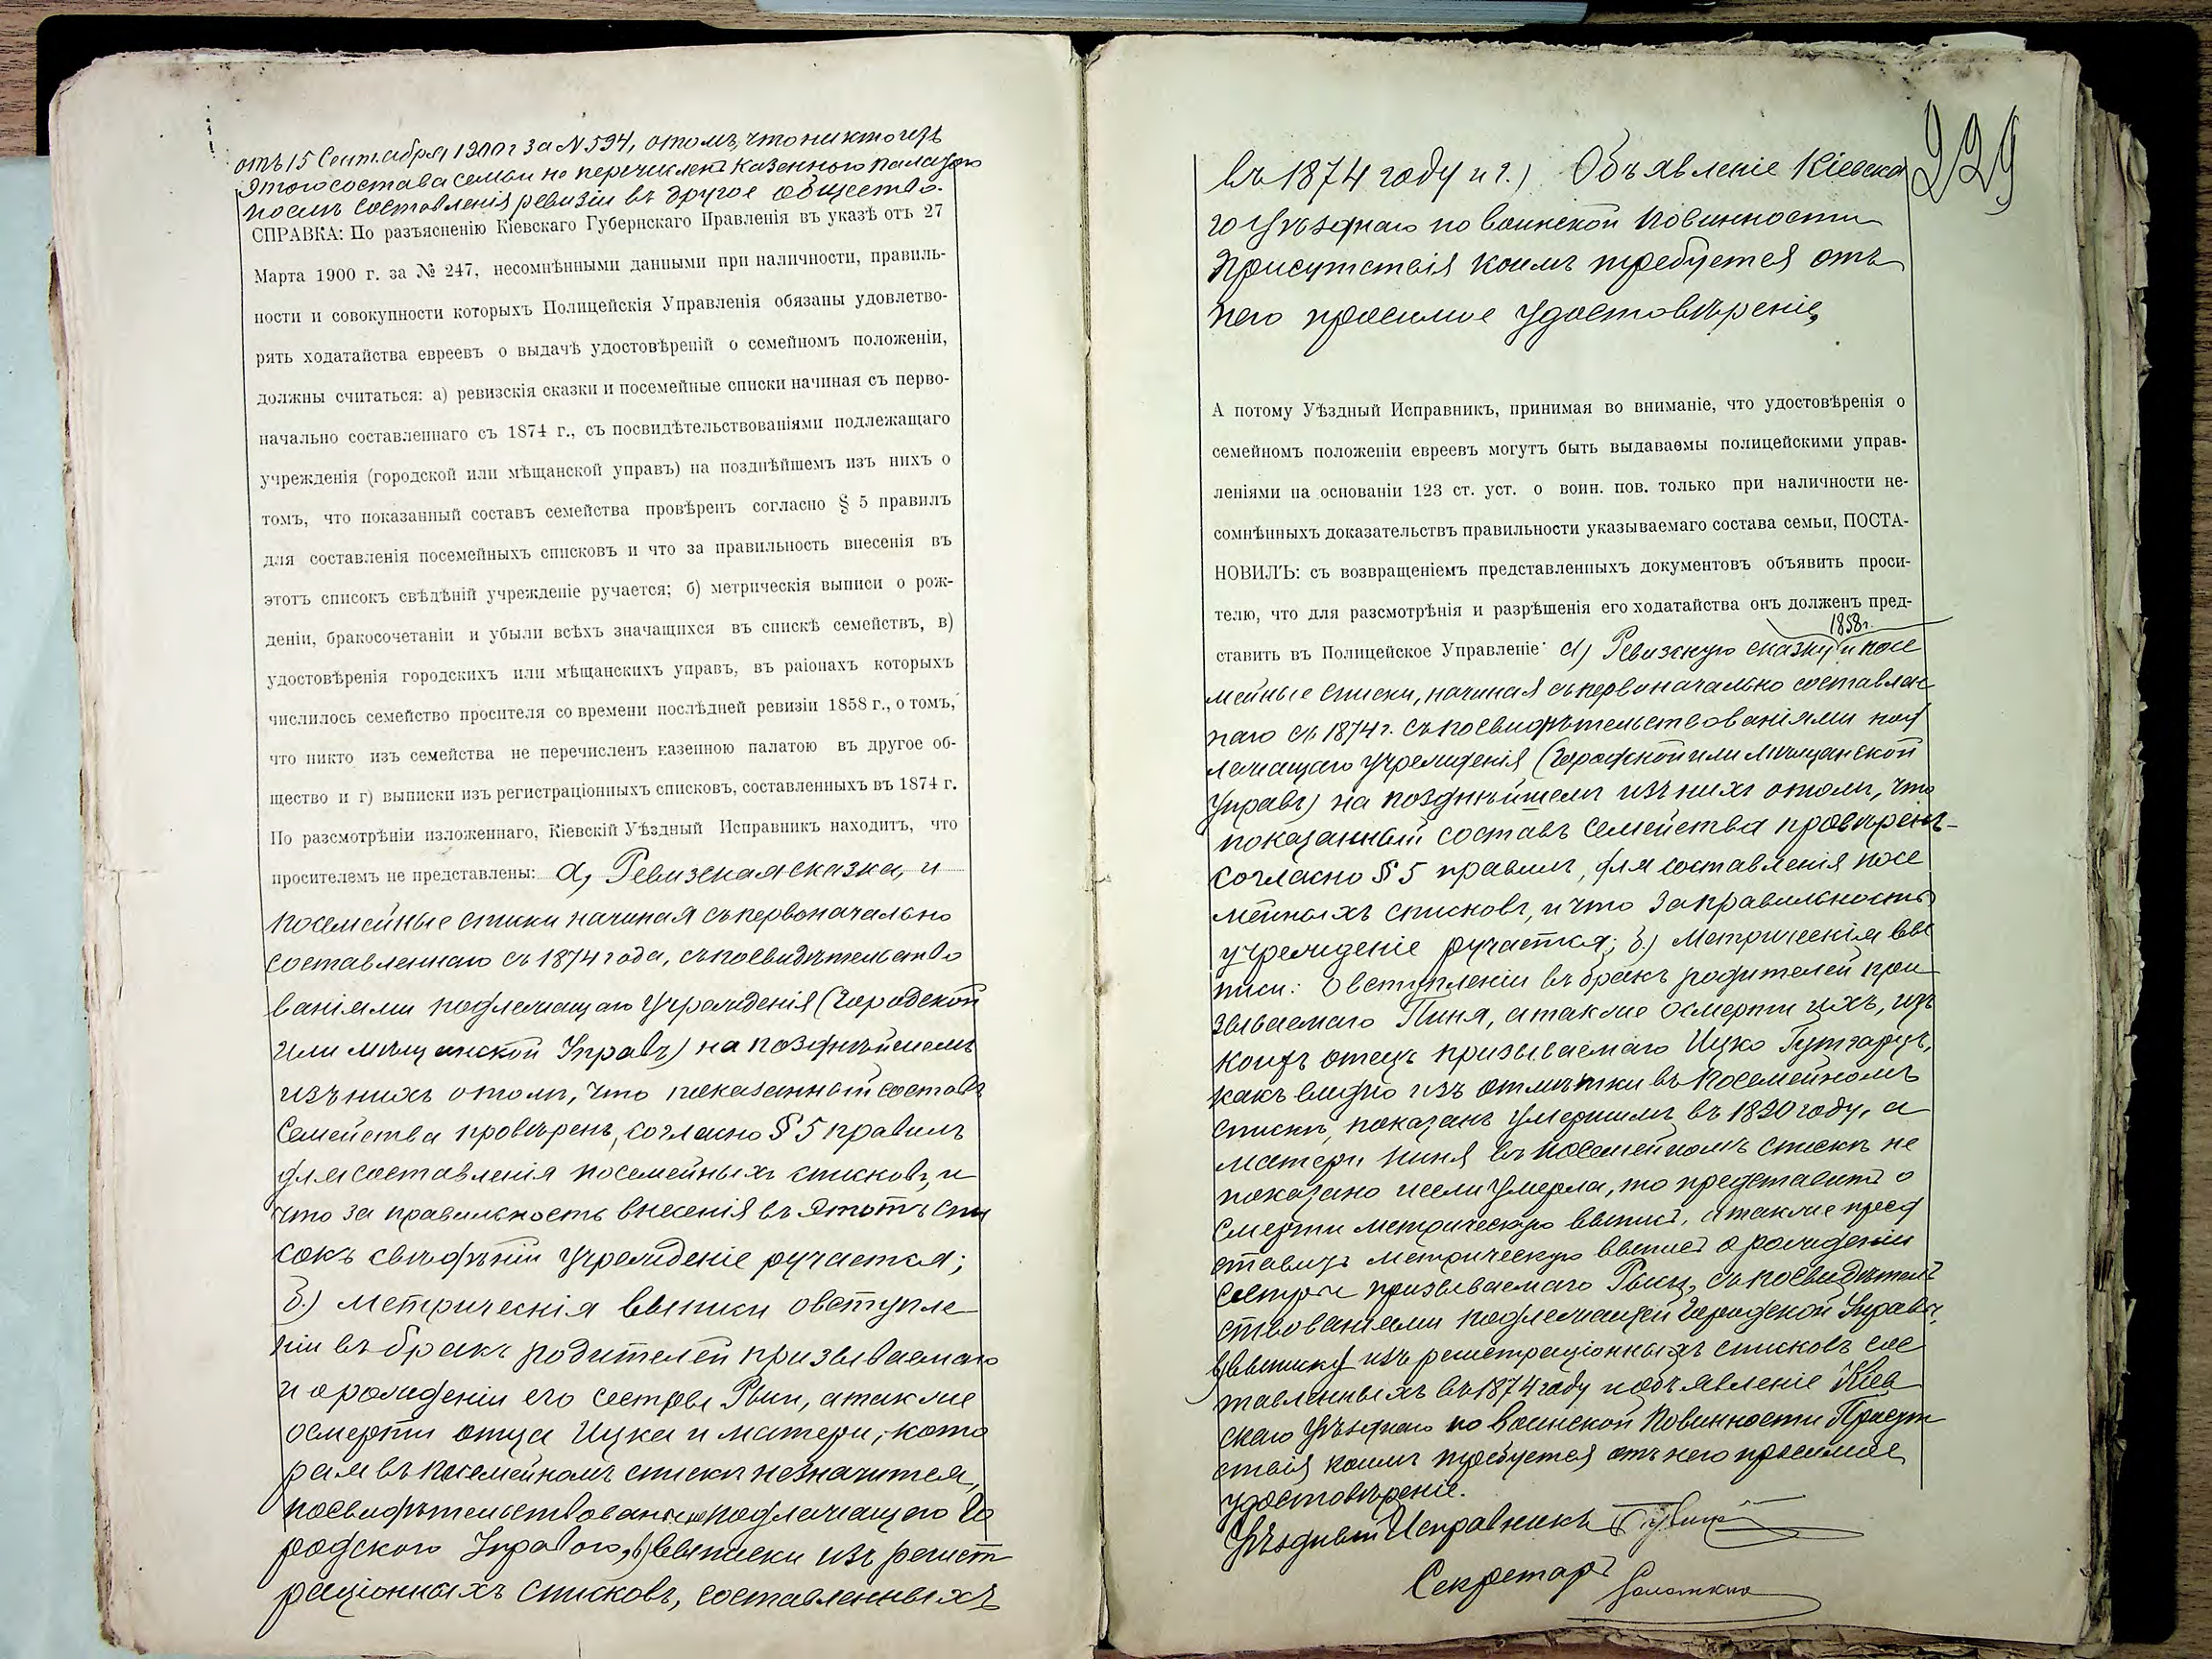 отъ 15 Сентября 1900 г за N 594, отомъ, что никто изъ
этого состава семьи не перечисленъ казенною палатою
послѣ составленія ревизіи въ другое общество.
СПРАВКА: По разъясненію Кіевскаго Губернскаго Правленія въ указѣ отъ 27
Марта 1900 г. за № 247, несомнѣнными данными при наличности, правиль-
ности и совокупности которыхъ Полицейскія Управленія обязаны удовлетво-
рять ходатайства евреевъ о выдачѣ удостовѣреній о семейномъ положеніи,
должны считаться: а) ревизскія сказки и посемейные списки начиная съ перво-
начально составленнаго съ 1874 г., съ посвидѣтельствованіями подлежащаго
учрежденія (городской или мѣщанской управъ) на позднѣйшемъ изъ нихъ о
томъ, что показанный составъ семейства провѣренъ согласно § 5 правилъ
для составленія посемейныхъ списковъ и что за правильность внесенія въ
этотъ списокъ свѣдѣній учрежденіе ручается; б) метрическія выписи о рож-
деніи, бракосочетаніи и убыли всѣхъ значащихся въ спискѣ семействъ, в)
удостовѣренія городскихъ или мѣщанскихъ управъ, въ раіонахъ которыхъ
числилось семейство просителя со времени послѣдней ревизіи 1858 г., о томъ,
что никто изъ семейства не перечисленъ казенною палатою въ другое об-
щество и г) выписки изъ регистраціонныхъ списковъ, составленныхъ въ 1874 г.
По разсмотрѣніи изложеннаго, Кіевскій Уѣздный Исправникъ находитъ, что
просителемъ не представлены: а, Ревизская сказка, и
посемейные списки начиная съ первоначально
составленнаго съ 1874 года, съ посвидѣтельство
ваніями подлежащаго Учрежденія (Городской
или мѣщанской Управъ) на позднѣйшемъ
изъ нихъ отомъ, что показанный составъ
Семейства провѣренъ, согласно § 5 правилъ
для составленія посемейныхъ списковъ, и
что за правильность внесенія въ этотъ спи
сокъ свѣдѣній Учрежденіе ручается;
б.) метрическія выписки овступле
ніи въ бракъ родителей призываемаго
и о рожденіи его сестры Рыси, атакже
осмерти отца Ицка и матери, кото
рая въ посемейномъ спискѣ незначится,
посвидѣтельствованною подлежащею Го
родскою Управою, в) выписки изъ регист
раціонныхъ списковъ, составленныхъ
229
въ 1874 году и г.) Объявленіе Кіевска
го Уѣзднаго по воинской повинности
Присутствія коимъ требуется отъ
него просимое удостовѣреніе,
А потому Уѣздный Исправникъ, принимая во вниманіе, что удостовѣренія о
семейномъ положеніи евреевъ могутъ быть выдаваемы полицейскими управ-
леніями на основаніи 123 ст. уст. о воин. пов. только при наличности не-
сомнѣнныхъ доказательствъ правильности указываемаго состава семьи, ПОСТА-
НОВИЛЪ: съ возвращеніемъ представленныхъ документовъ объявить проси-
телю, что для разсмотрѣнія и разрѣшенія его ходатайства онъ долженъ пред-
1858 г.
ставить въ Полицейское Управленіе а) Ревизскую сказку и посе
мейные списки, начиная съ первоначально составлен
наго съ 1874 г. съ посвидѣтельствованіями под
лежащаго учрежденія (Городской или мѣщанской
Управъ) на позднѣйшемъ изъ нихъ отомъ, что
показанный составъ Семейства провѣренъ
согласно § 5 правилъ, для составленія посе
мейныхъ списковъ, и что за правильность
учрежденіе ручается; б.) Метрическія вы
писи: О вступленіи въ бракъ родителей при
зываемаго Пиня, атакже осмерти ихъ, изъ
коихъ отецъ призываемаго Ицко Гутгарцъ,
какъ видно изъ отмѣтки въ посемейномъ
спискѣ, показанъ умершимъ въ 1890 году, а
матери Пиня въ посемейномъ спискѣ не
показано иесли умерла, то представитъ о
Смерти метрическую выпись, атакже пред
ставитъ метрическую выпись о рожденіи
Сестры призываемаго Рыси, съ посвидѣтель
ствованіями подлежащей Городской Управы,
в) выписку изъ регистраціонныхъ списковъ сос
тавленныхъ въ 1874 году и объявленіе Кіев
скаго Уѣзднаго по воинской повинности Присут
ствія коимъ требуется отъ него просимое
удостовѣреніе.
Уѣздный Исправникъ
Секретарь